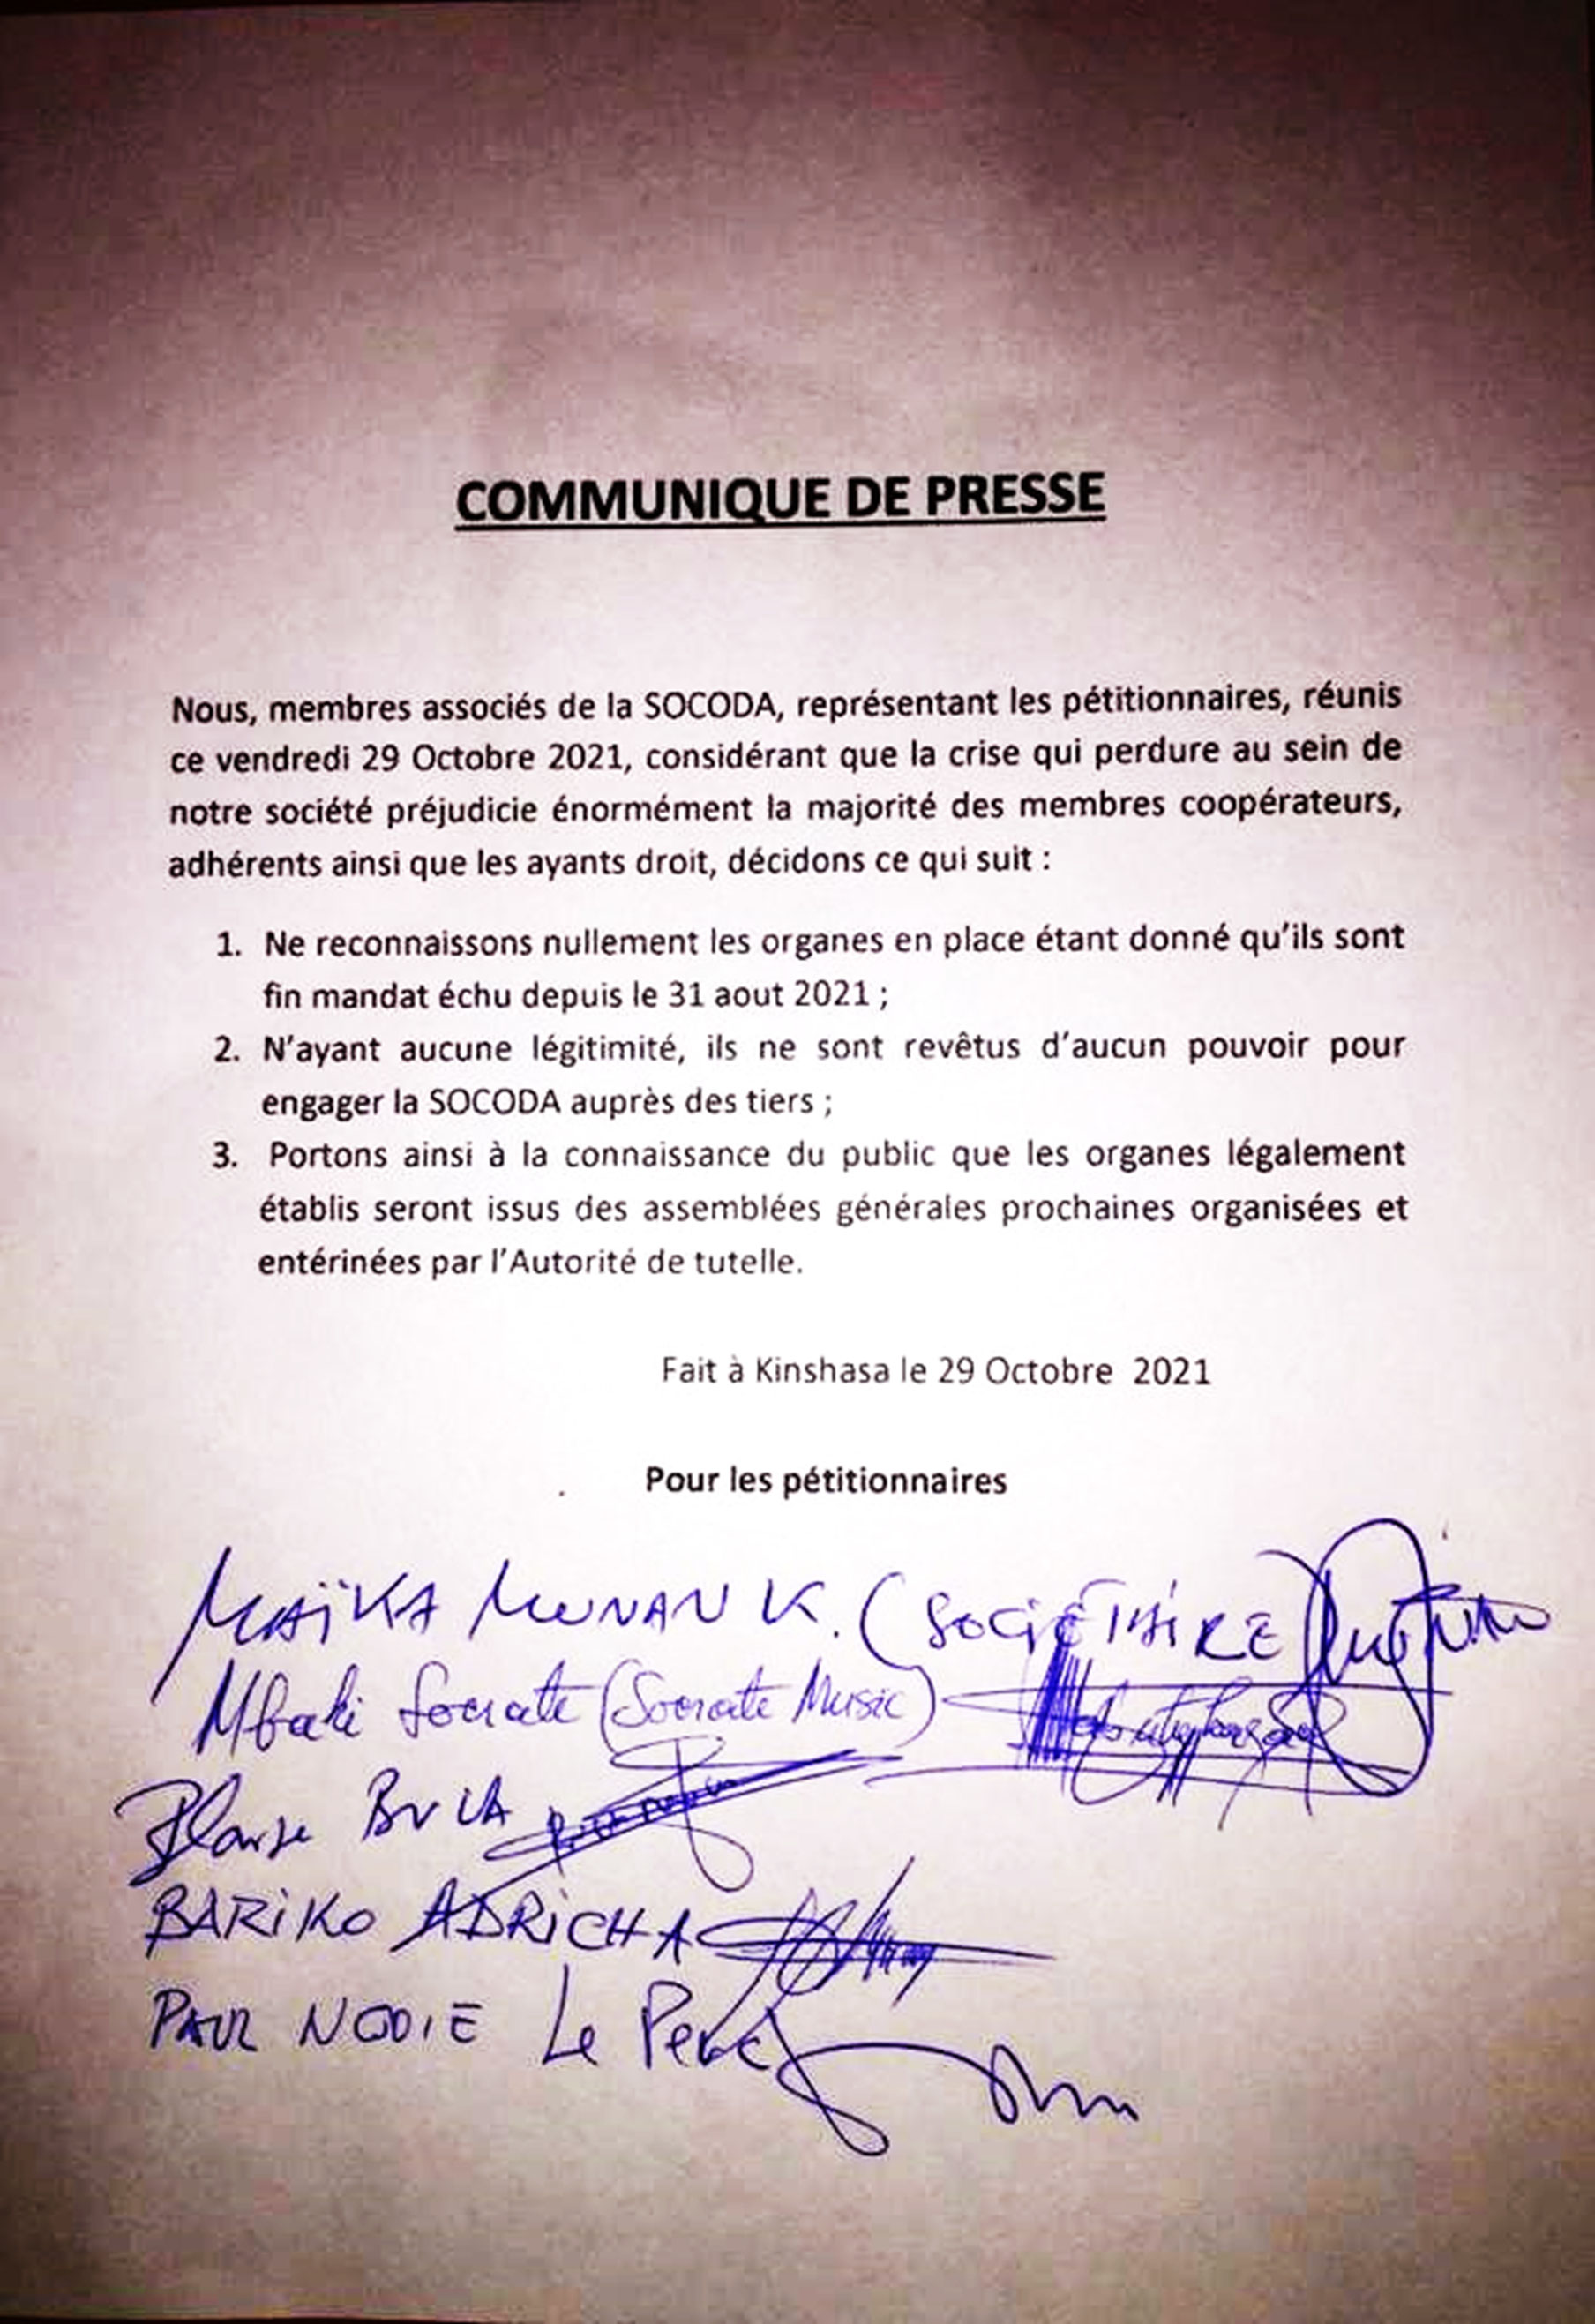 COMMUNIQUE DE PRESSE
Nous, membres associés de la SOCODA, représentant les pétitionnaires, réunis
ce vendredi 29 Octobre 2021, considérant que la crise qui perdure au sein de
notre société préjudicie énormément la majorité des membres coopérateurs,
adhérents ainsi que les ayants droit, décidons ce qui suit :
1. Ne reconnaissons nullement les organes en place étant donné qu'ils sont
fin mandat échu depuis le 31 aout 2021 ;
2. N'ayant aucune légitimité, ils ne sont revêtus d'aucun pouvoir pour
engager la SOCODA auprès des tiers ;
3. Portons ainsi à la connaissance du public que les organes légalement
établis seront issus des assemblées générales prochaines organisées et
entérinées par l'Autorité de tutelle.
Fait à Kinshasa le 29 Octobre 2021
Pour les pétitionnaires
MAÏKA MUNAN K. (SOCIÉTAIRE)
Mbaki Socrate (Socrate Music)
Blaise BULA
BARIKO ADRICHA
PAUL NGOIE Le Perc